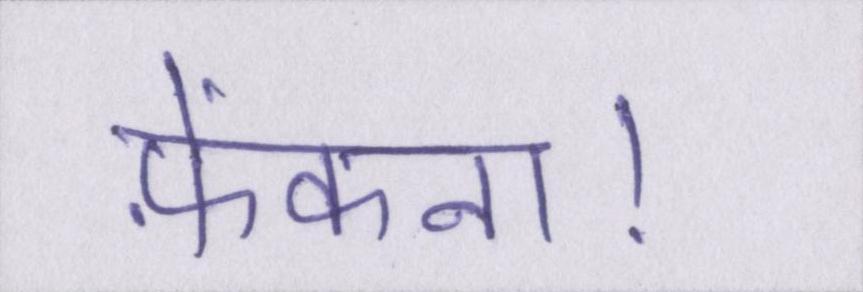 फ़ेंकना!